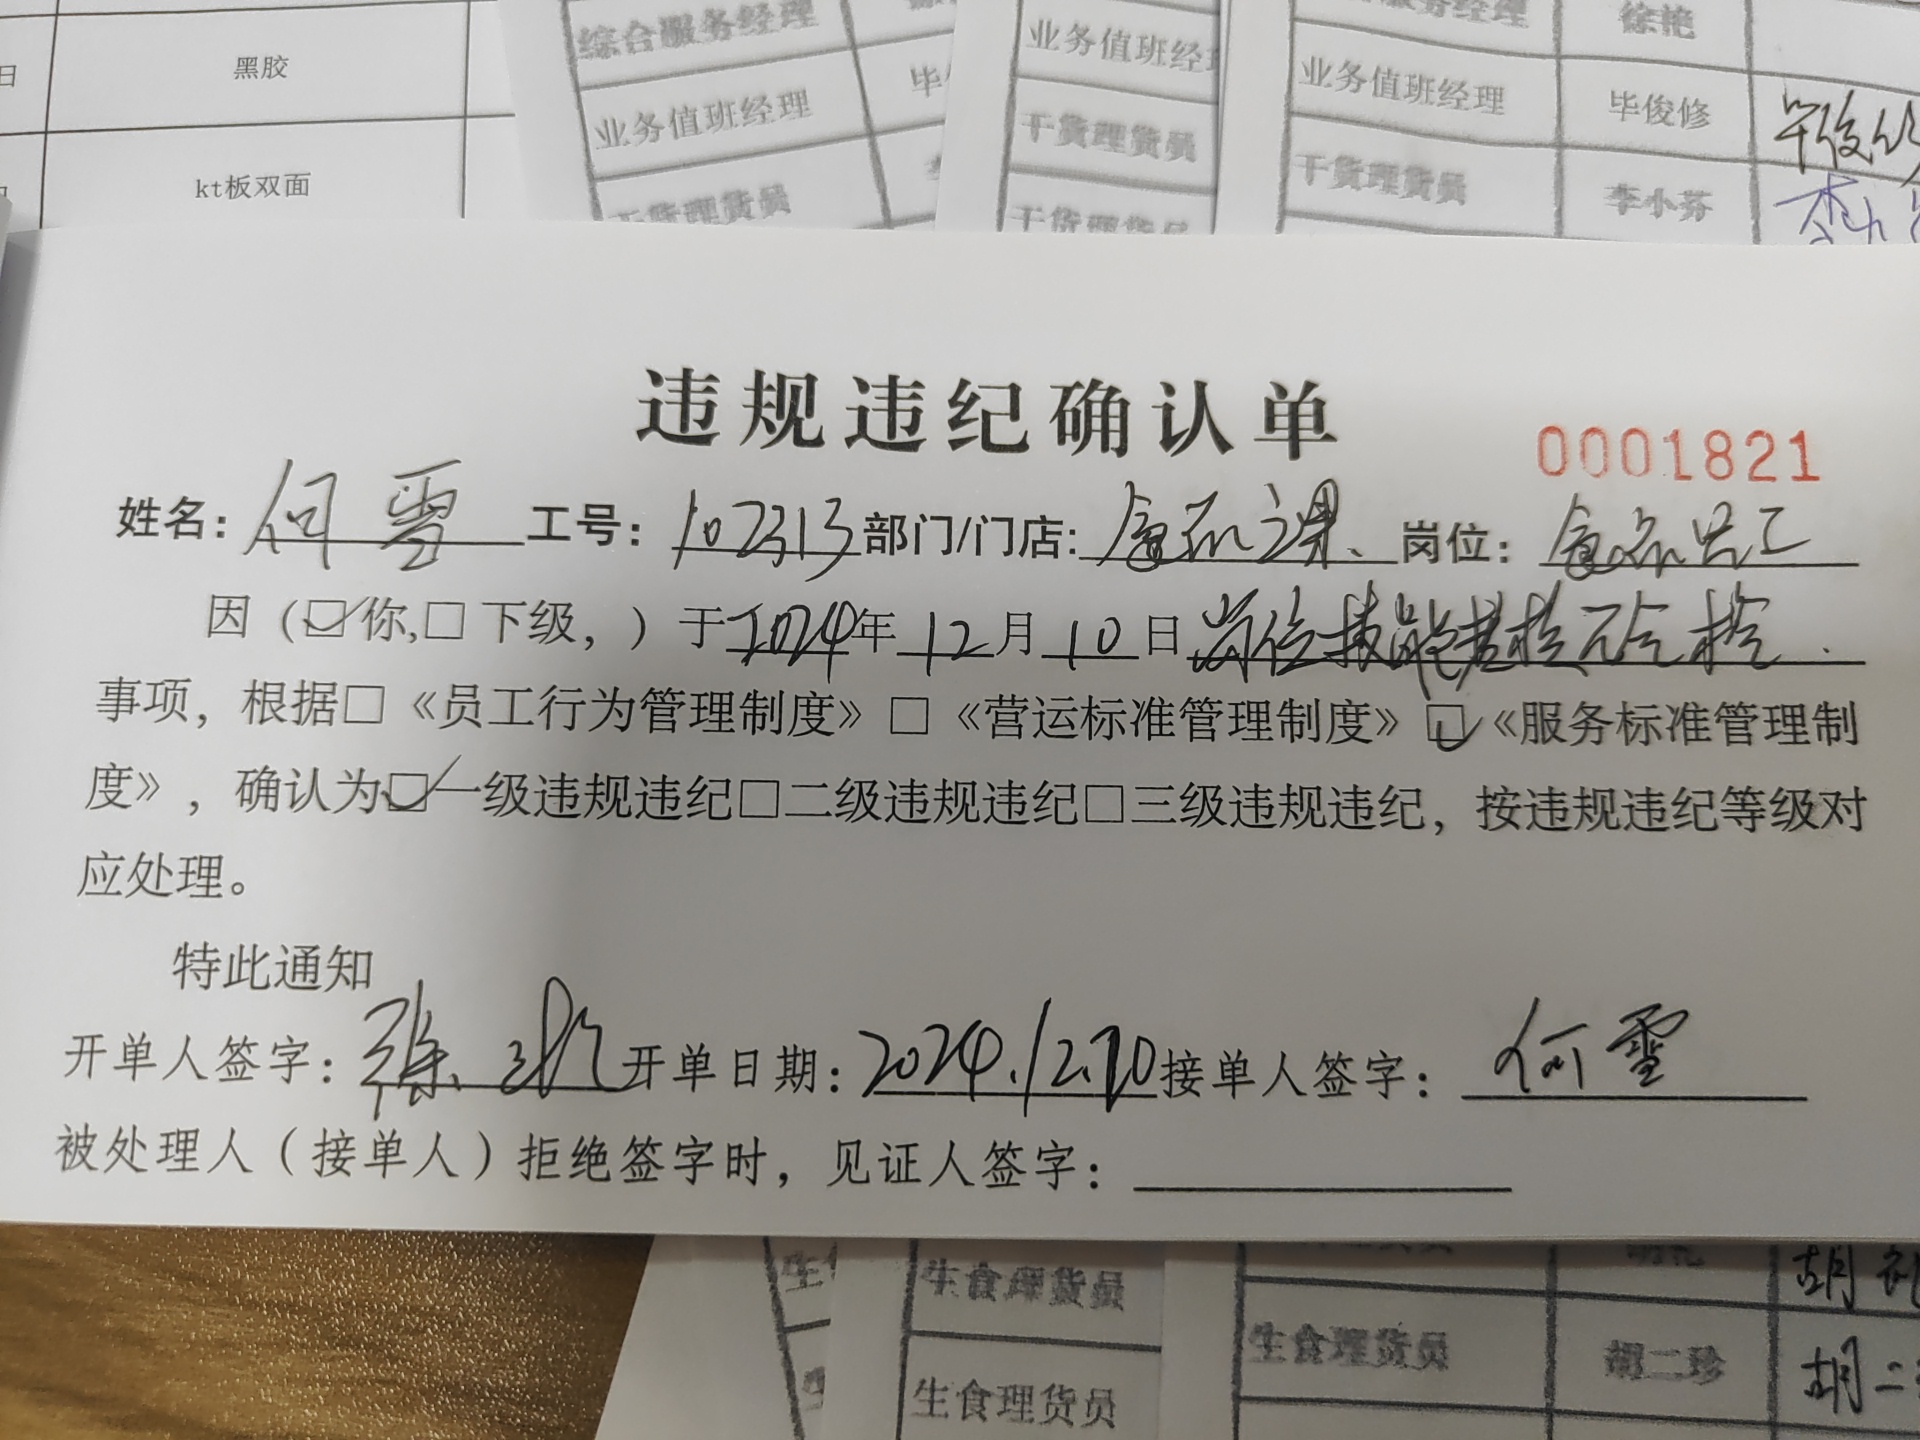 日 黑胶
kt板双面
综合服务经理
业务值班经理 毕
干货理货员
业务值班经
干货理货员
干货理货员
服务经理 徐艳
业务值班经理 毕俊修 毕俊修
干货理货员 李小芬 李小
违规违纪确认单
0001821
姓名：何雪 工号：102313 部门/门店：食品课、 岗位：食品员工
因（☑你,□下级，）于2024年12月10日岗位技能考核不合格.
事项，根据□《员工行为管理制度》□《营运标准管理制度》☑《服务标准管理制
度》，确认为☑一级违规违纪□二级违规违纪□三级违规违纪，按违规违纪等级对
应处理。
特此通知
开单人签字：徐 开单日期：2024.12.10 接单人签字：何雪
被处理人（接单人）拒绝签字时，见证人签字：
生食理货员
生食理货员
胡
生食理货员 胡二珍 胡二